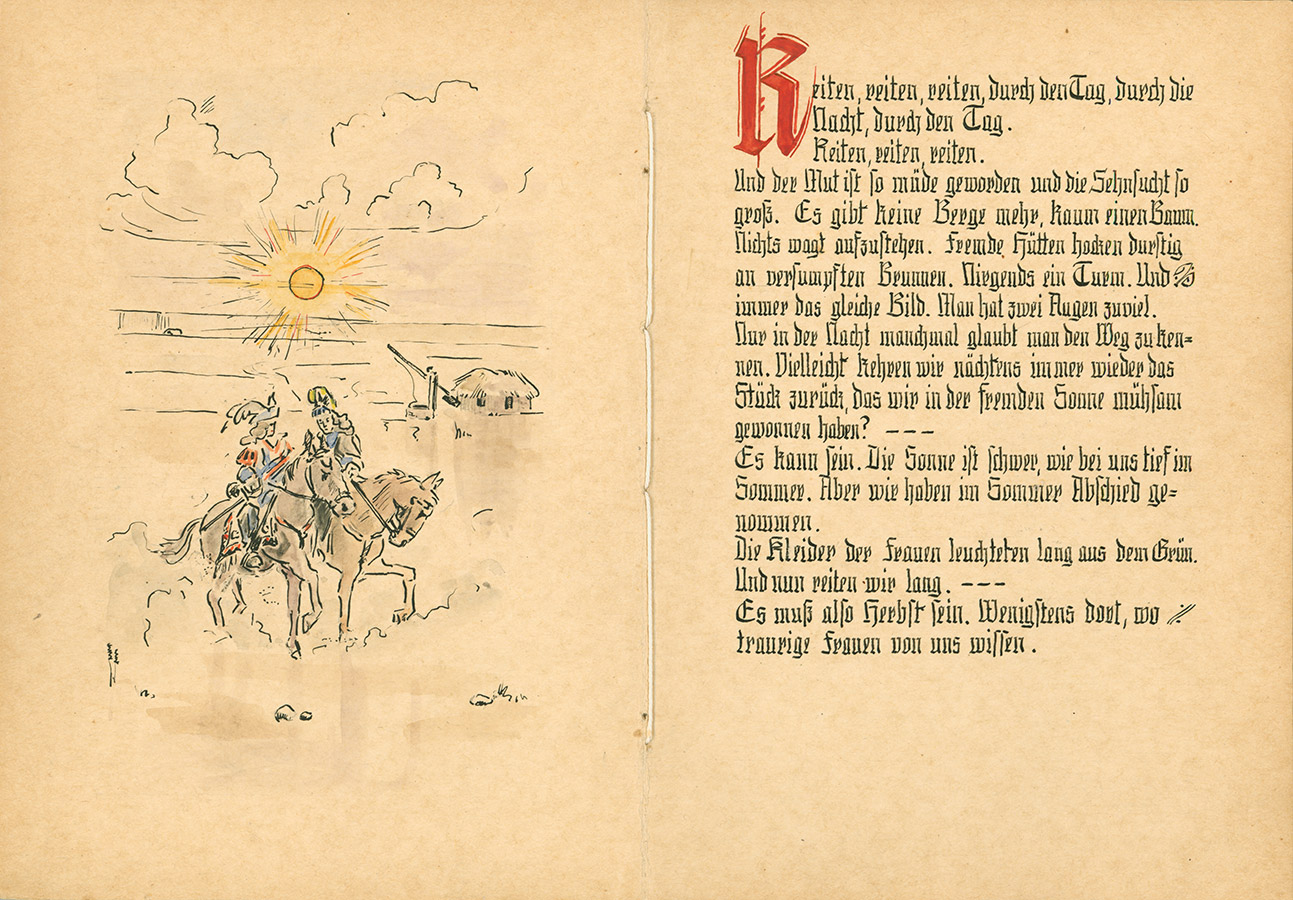 Reiten, reiten, reiten, durch den Tag, durch die
Nacht, durch den Tag.
Reiten, reiten, reiten.
Und der Mut ist so müde geworden und die Sehnsucht so
groß. Es gibt keine Berge mehr, kaum einen Baum.
Nichts wagt aufzustehen. Fremde Hütten hocken durstig
an versumpften Brunnen. Nirgends ein Turm. Und
immer das gleiche Bild. Man hat zwei Augen zuviel.
Nur in der Nacht manchmal glaubt man den Weg zu ken=
nen. Vielleicht kehren wir nächtens immer wieder das
Stück zurück, das wir in der fremden Sonne mühsam
gewonnen haben? ---
Es kann sein. Die Sonne ist schwer, wie bei uns tief im
Sommer. Aber wir haben im Sommer Abschied ge=
nommen.
Die Kleider der Frauen leuchteten lang aus dem Grün.
Und nun reiten wir lang. ---
Es muß also Herbst sein. Wenigstens dort, wo
traurige Frauen von uns wissen.